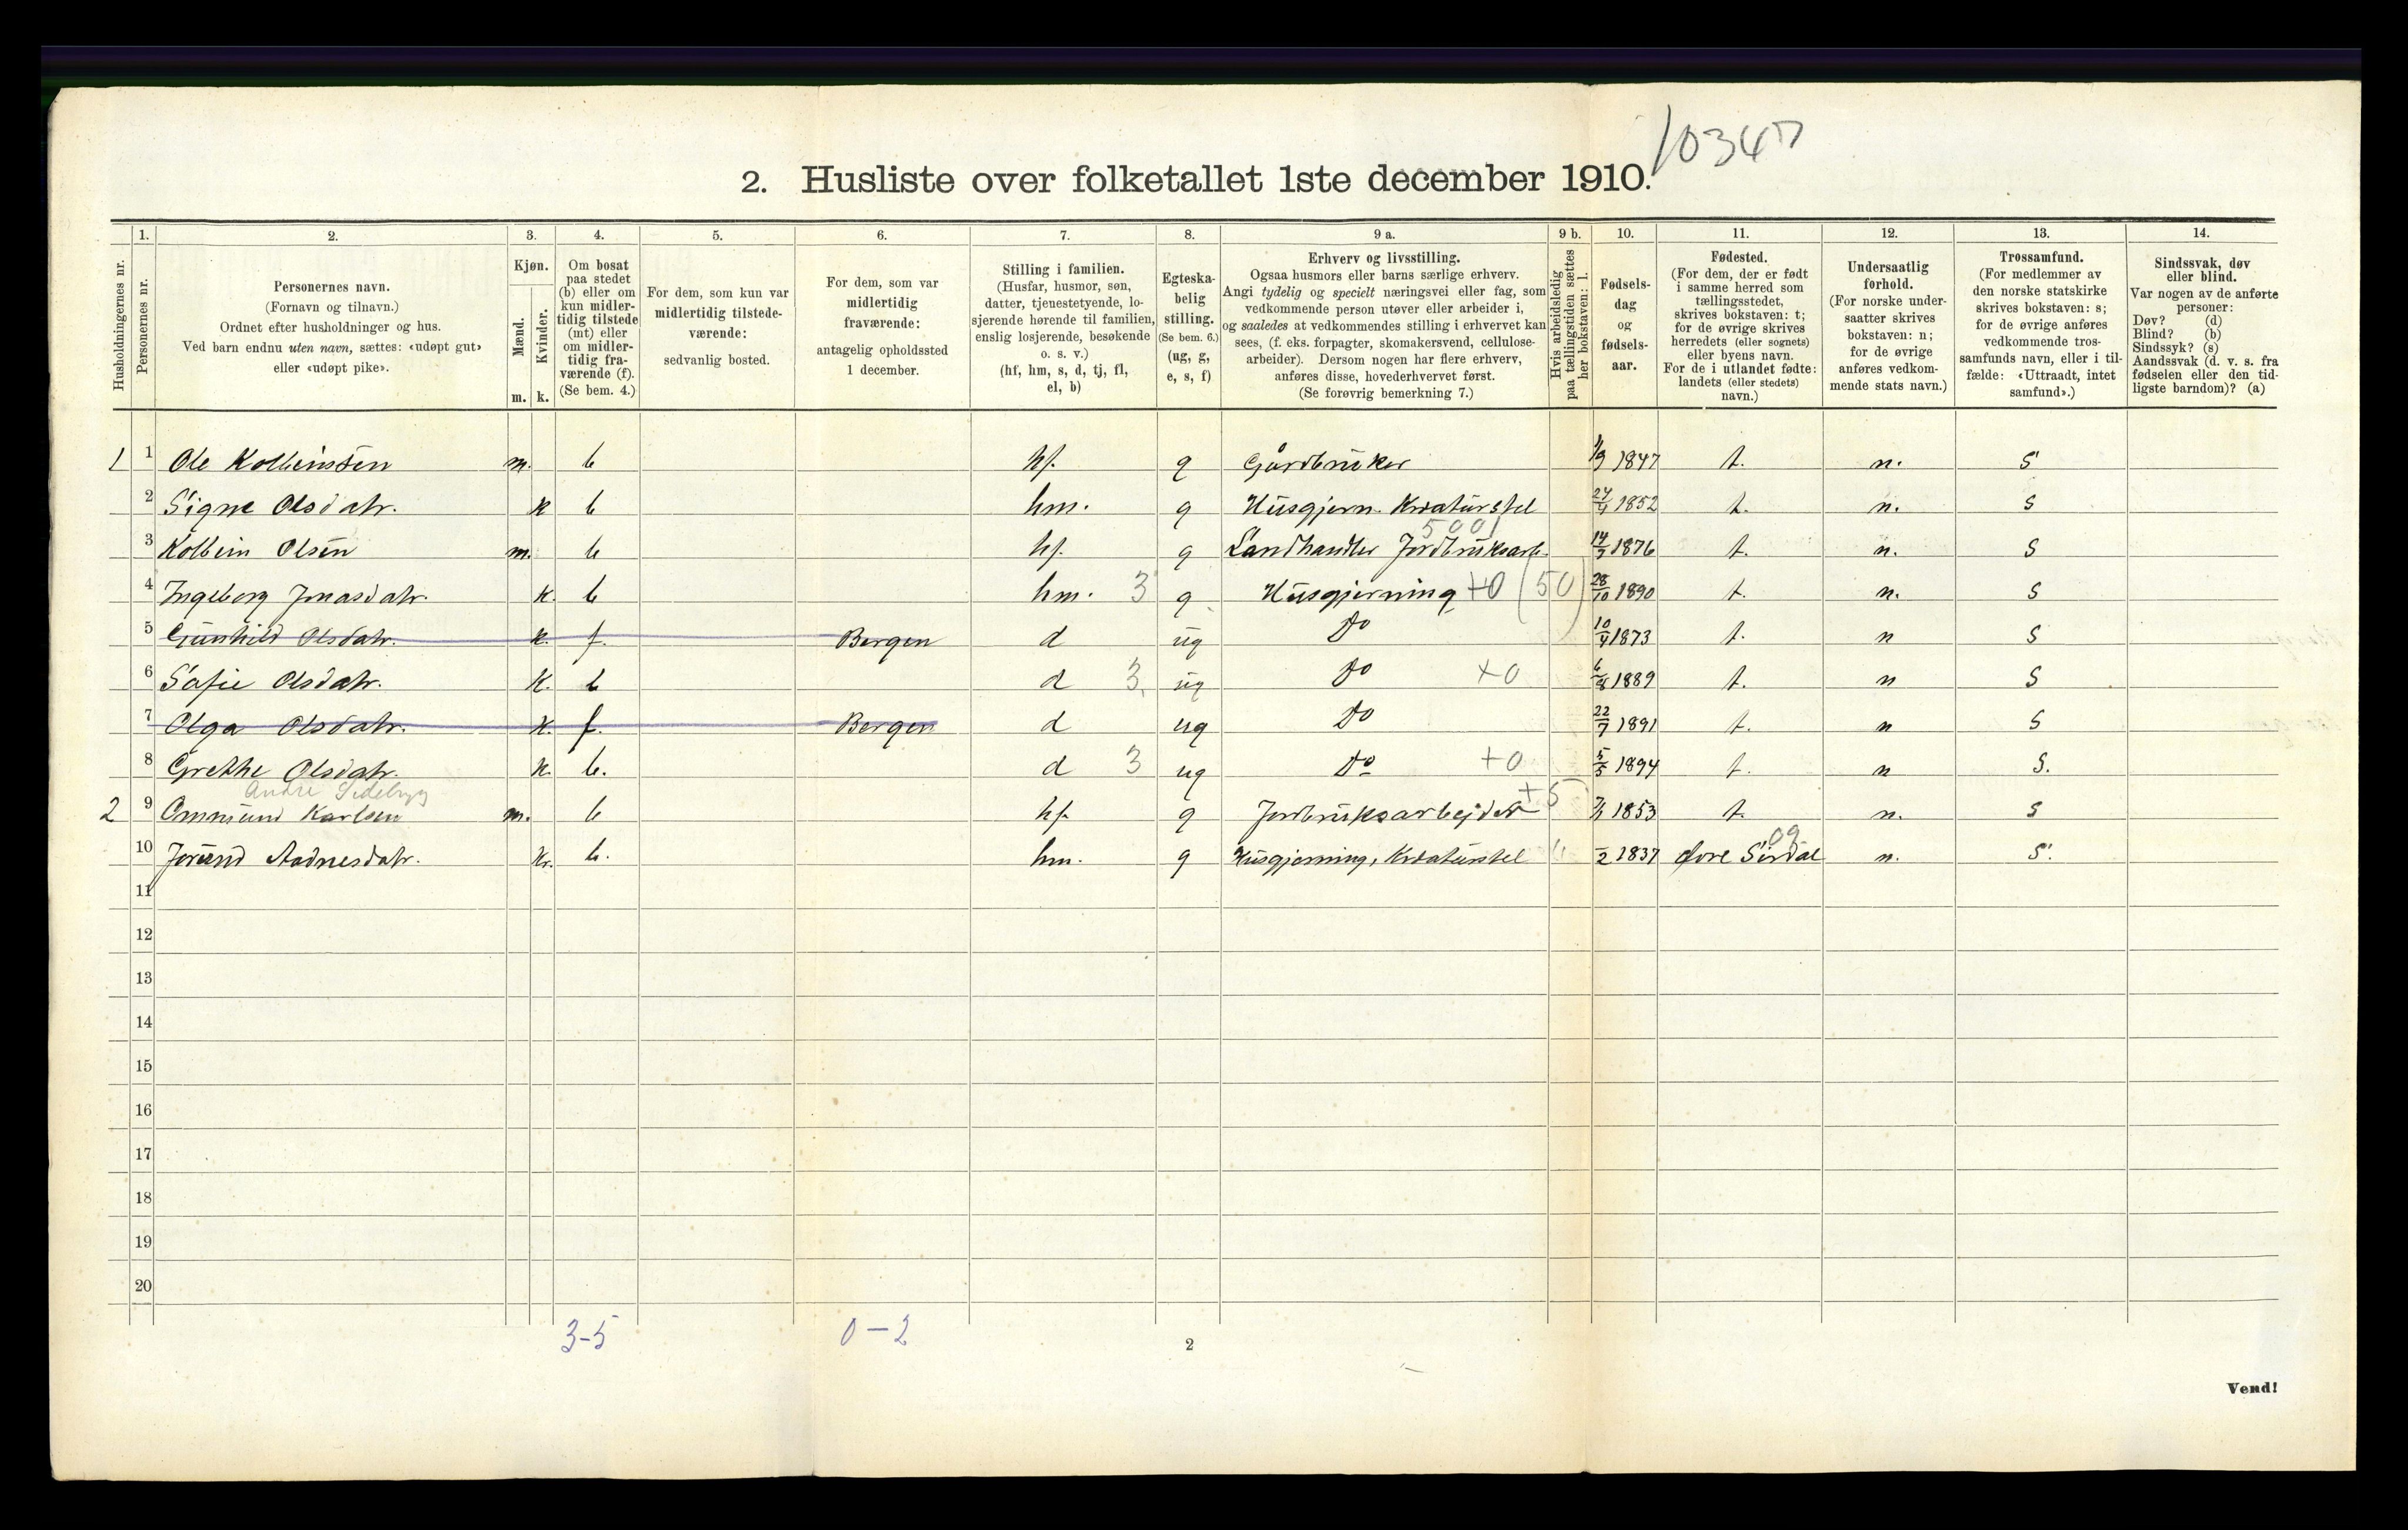 10347
2. Husliste over folketallet 1ste december 1910.
Husholdningernes nr.
1.
Personernes nr.
2.
Personernes navn.
(Fornavn og tilnavn.)
Ordnet efter husholdninger og hus.
Ved barn endnu uten navn, sættes: «udøpt gut»
eller «udøpt pike».
3.
Kjøn.
Mænd.
Kvinder.
m. k.
4.
Om bosat
paa stedet
(b) eller om
kun midler-
tidig tilstede
(mt) eller
om midler-
tidig fra-
værende (f).
(Se bem. 4.)
5.
For dem, som kun var
midlertidig tilstede-
værende:
sedvanlig bosted.
6.
For dem, som var
midlertidig
fraværende:
antagelig opholdssted
1 december.
7.
Stilling i familien.
(Husfar, husmor, søn,
datter, tjenestetyende, lo-
sjerende hørende til familien,
enslig losjerende, besøkende
o. s. v.)
(hf, hm, s, d, tj, fl,
el, b)
8.
Egteska-
belig
stilling.
(Se bem. 6.)
(ug, g,
e, s, f)
9 a.
Erhverv og livsstilling.
Ogsaa husmors eller barns særlige erhverv.
Angi tydelig og specielt næringsvei eller fag, som
vedkommende person utøver eller arbeider i,
og saaledes at vedkommendes stilling i erhvervet kan
sees, (f. eks. forpagter, skomakersvend, cellulose-
arbeider). Dersom nogen har flere erhverv,
anføres disse, hovederhvervet først.
(Se forøvrig bemerkning 7.)
9 b.
Hvis arbeidsledig
paa tællingstiden sættes
her bokstaven: l.
10.
Fødsels-
dag
og
fødsels-
aar.
11.
Fødested.
(For dem, der er født
i samme herred som
tællingsstedet,
skrives bokstaven: t;
for de øvrige skrives
herredets (eller sognets)
eller byens navn.
For de i utlandet fødte:
landets (eller stedets)
navn.)
12.
Undersaatlig
forhold.
(For norske under-
saatter skrives
bokstaven: n;
for de øvrige
anføres vedkom-
mende stats navn.)
13.
Trossamfund.
(For medlemmer av
den norske statskirke
skrives bokstaven: s;
for de øvrige anføres
vedkommende tros-
samfunds navn, eller i til-
fælde: «Uttraadt, intet
samfund».)
14.
Sindssvak, døv
eller blind.
Var nogen av de anførte
personer:
Døv? (d)
Blind? (b)
Sindssyk? (s)
Aandssvak (d. v. s. fra
fødselen eller den tid-
ligste barndom)? (a)
1 1 Ole Kolbeinsen m. b hf. g Gårdbruker 1/9 1847 t. n. S
2 Signe Olsdatr. k b hm. g Husgjern. Kreaturstel 24/4 1852 t. n. S
5001
3 Kolbein Olsen m. b hf. g Landhandler Jordbruksarb. 1876 t. n. S
4 Ingeborg Jonasdatr. k. b hm. 3 g Husgjerning +0 (50) 28/10 1890 t. n. S
5 Gunhild Olsdatr. k. f. Bergen d ug Do 10/4 1873 t. n S
6 Sofie Olsdatr. k. b d 3. ug Do +0 6/8 1889 t. n S
7 Olga Olsdatr. k. f. Bergen d ug Do 22/7 1891 t. n S
8 Grethe Olsdatr. k. b. d 3 ug Do +0 5/5 1894 t. n S.
Andre Sidebyg
+5
2 9 Ommund Karlsen m. b hf. g Jordbruksarbejder 1853 t. n. S
09
10 Jorund Aadnesdatr. k. b. hm. g Husgjerning, Kreaturstel /2 1837 Øvre Sirdal n. S.
11
12
13
14
15
16
17
18
19
20
3-5
0-2
2
Vend!